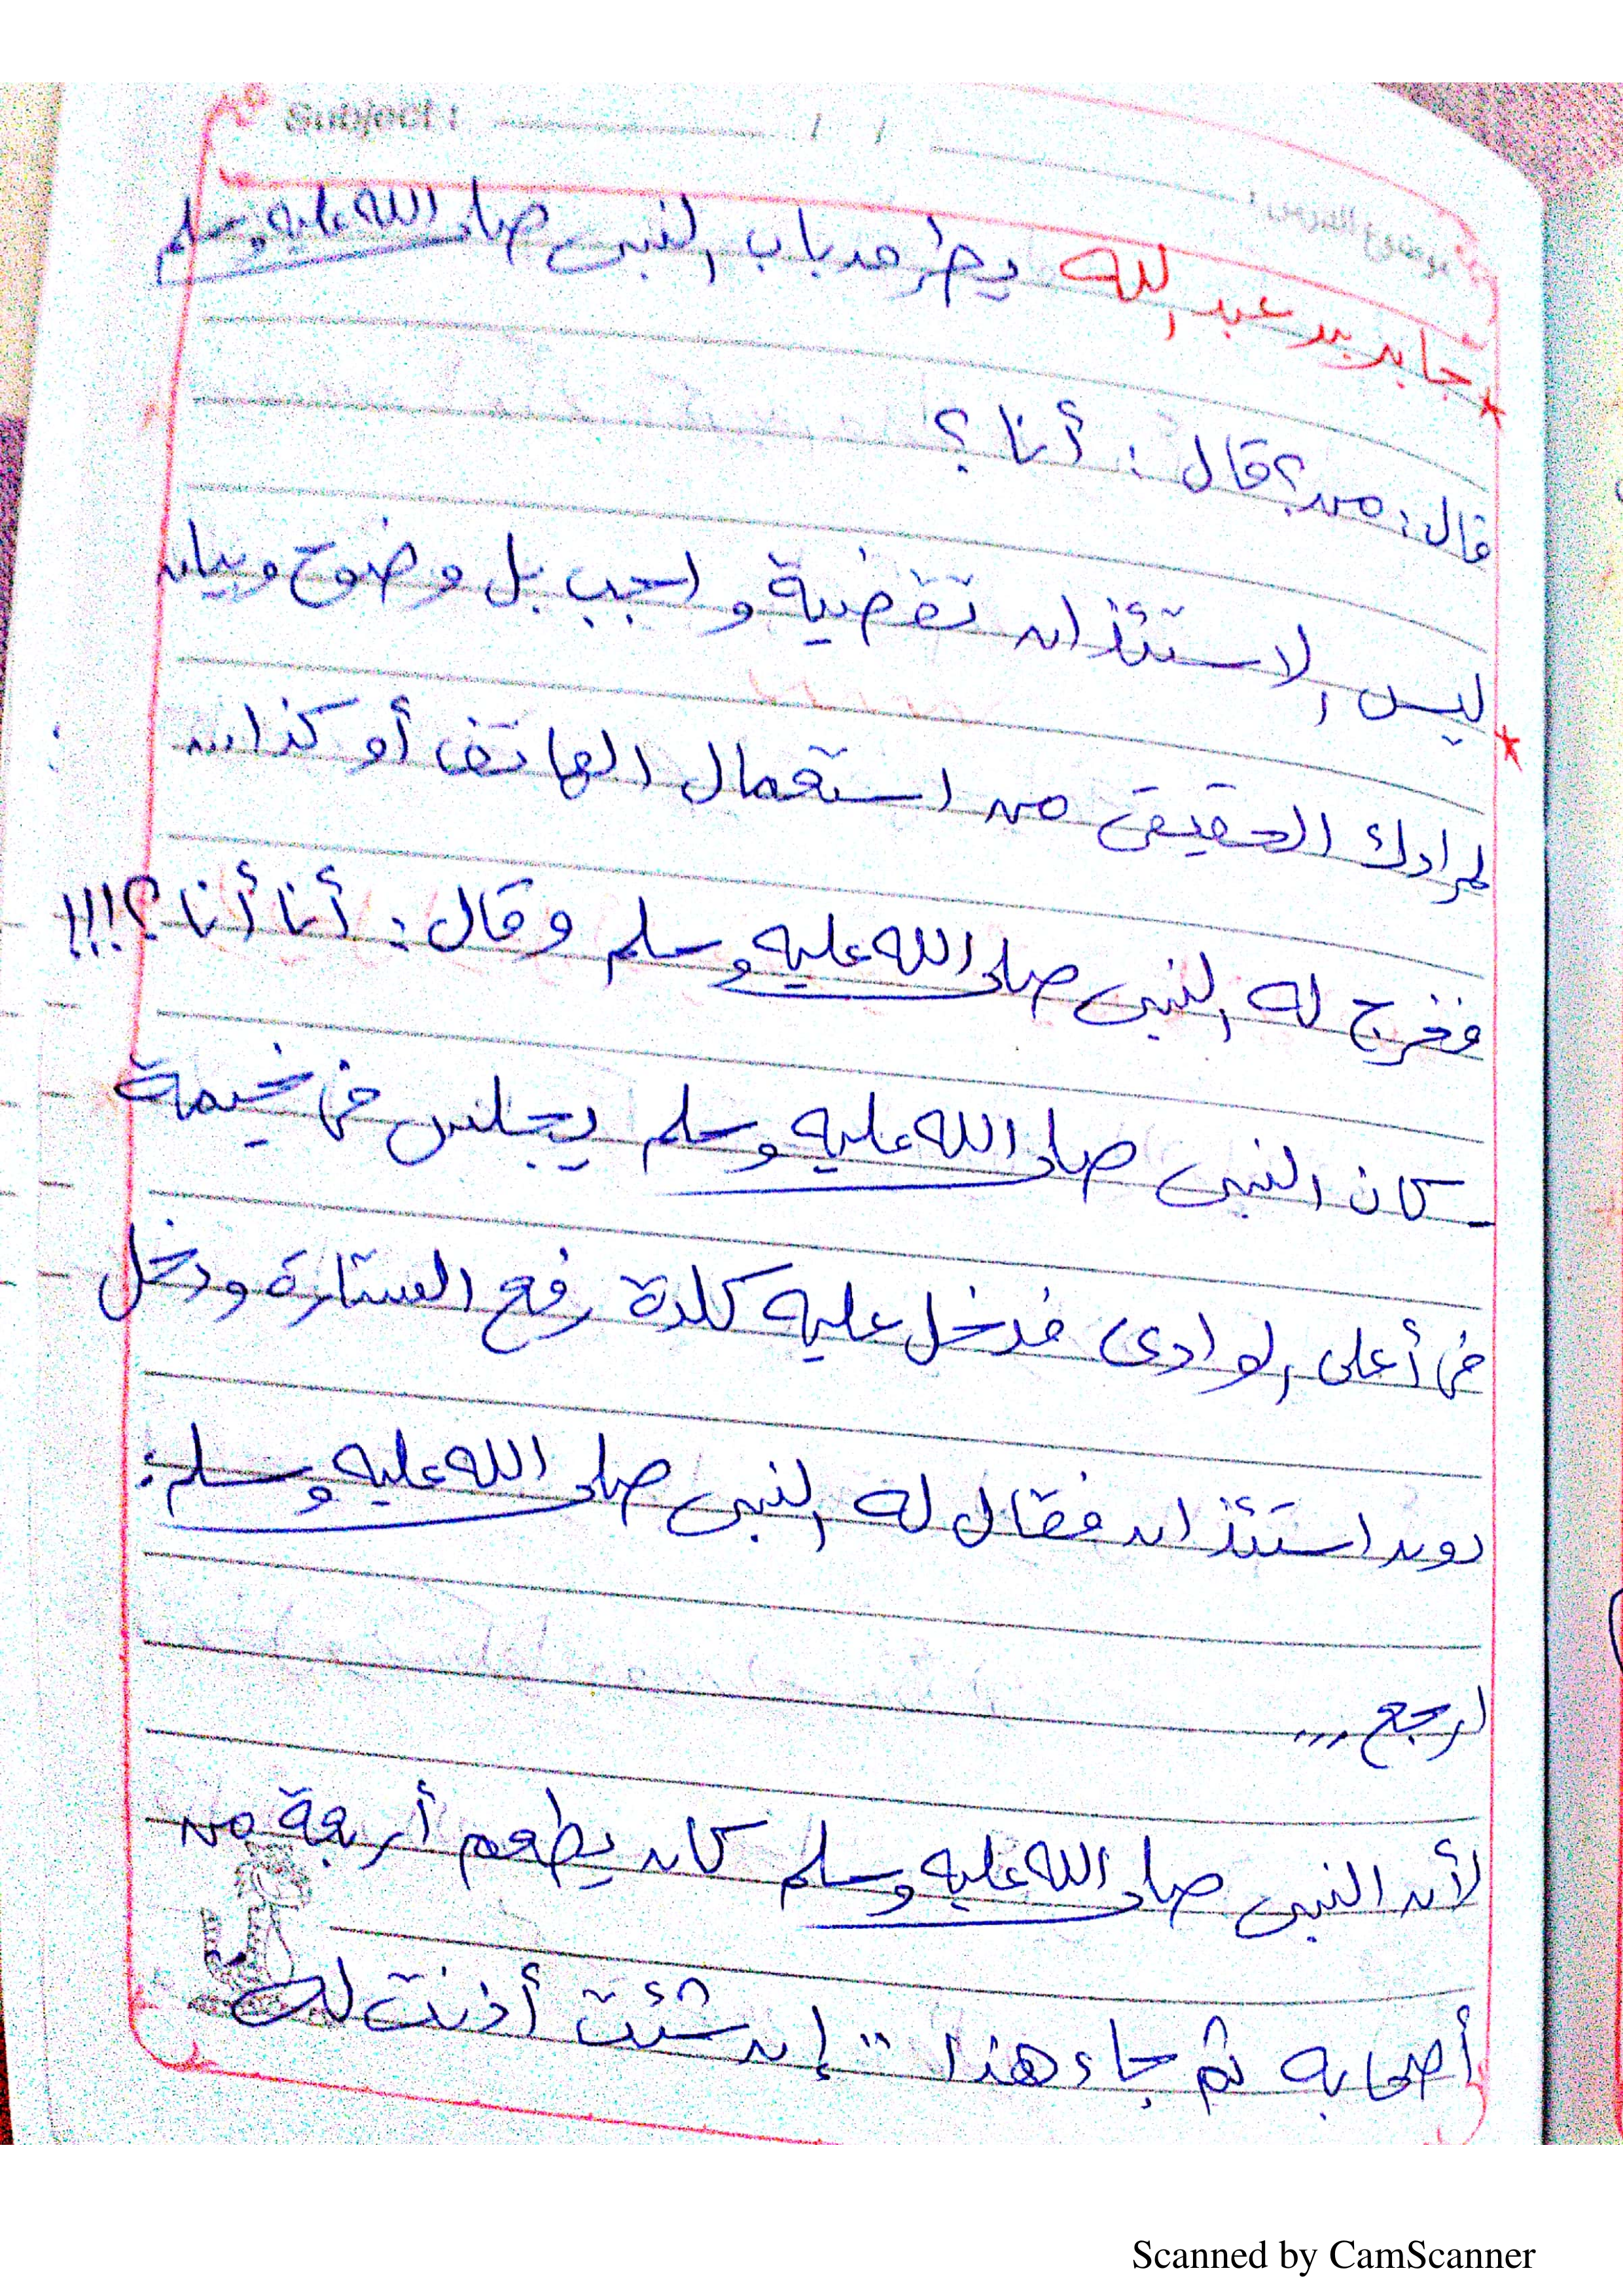 Subject : / / موضوع الدرس :
* جابر بن عبد الله يطرق باب النبى صلى الله عليه وسلم
قال: من؟ قال : أنا ؟
* ليس الاستئذان تقضية واجب بل وضوح وبيان
لمرادك الحقيقى من استعمال الهاتف أو كذا...
فخرج له النبى صلى الله عليه وسلم وقال: أنا أنا ؟!!!
- كان النبى صلى الله عليه وسلم يجلس فى خيمة
فى أعلى الوادى فدخل عليه كلدة رفع الستارة ودخل
دون استئذان فقال له النبى صلى الله عليه وسلم:
ارجع ...
لأن النبى صلى الله عليه وسلم كان يطعم أربعة من
أصحابه ثم جاء هذا .. إن شئت أذنت له
Scanned by CamScanner